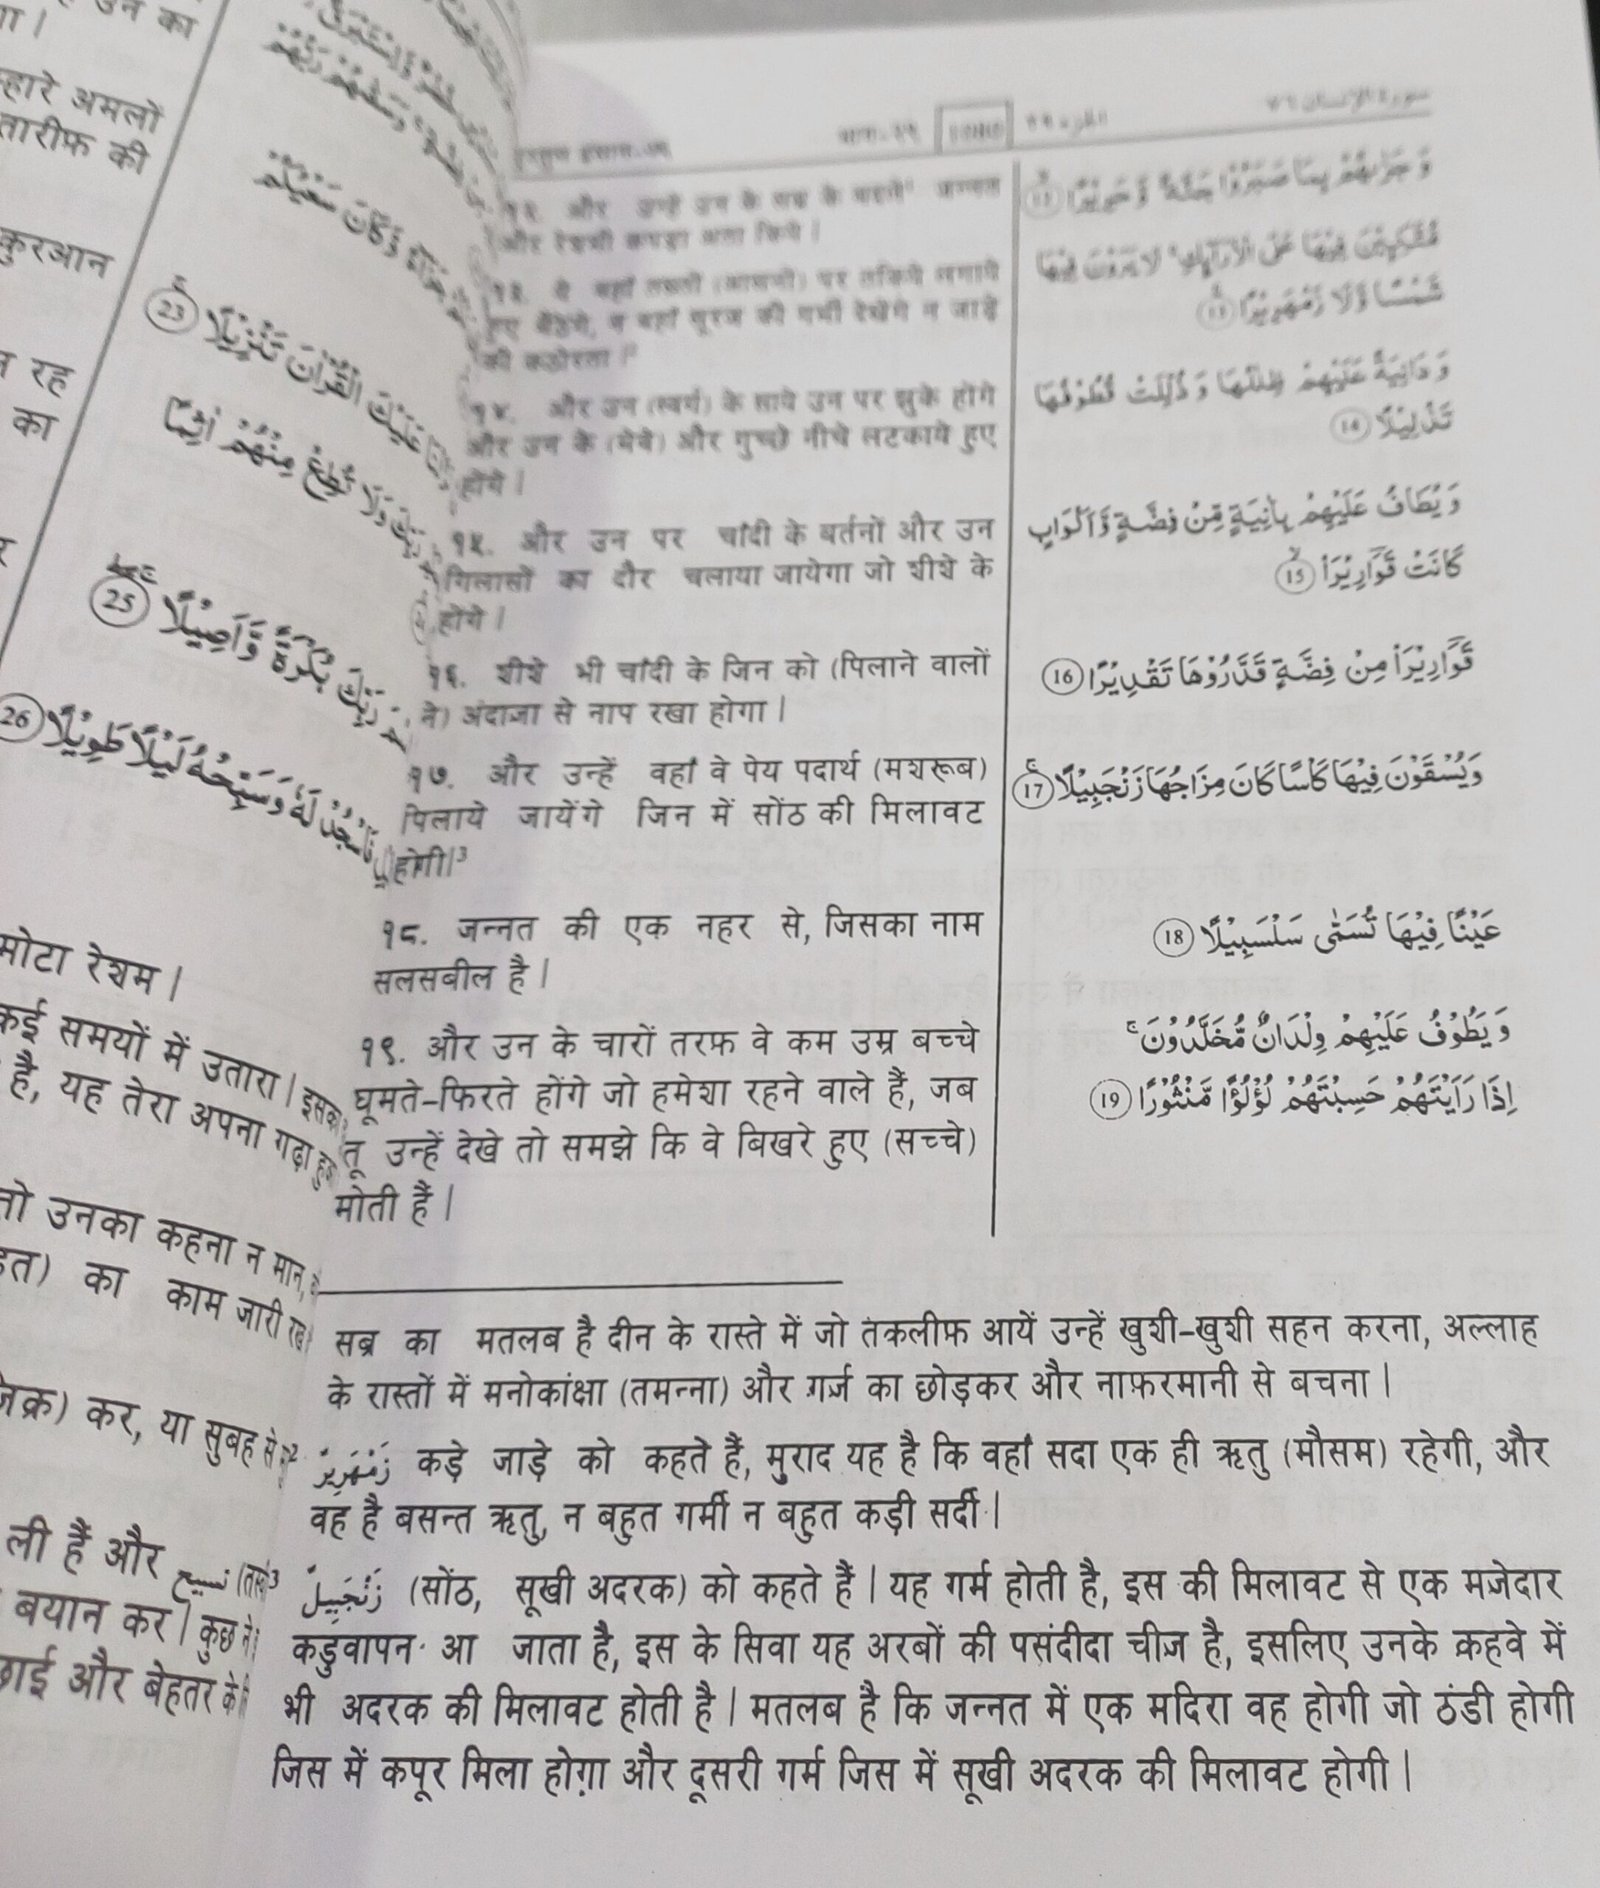 उन का
हारे अमलों
तारीफ़ की
कुरआन
रह
का
मोटा रेशम |
कई समयों में उतारा | इसका
है, यह तेरा अपना गढ़ा
तो उनका कहना न मान,
का काम जारी
कर, या सुबह
ली हैं और تسبيح
बयान कर | कुछ ने
और बेहतर के
عَلَيْكَ الْقُرْاٰنَ تَنْزِيْلًا 23
وَلَا تُطِعْ مِنْهُمْ اٰثِمًا
رَبِّكَ بُكْرَةً وَّاَصِيْلًا 25
فَاسْجُدْ لَهٗ وَسَبِّحْهُ لَيْلًا طَوِيْلًا 26
سورة الإنسان ٧٦
الجزء ٢٩
भाग-२९
१२. और उन्हें उन के सब्र के बदले जन्नत
और रेशमी कपड़ा अता किये |
१३. ये वहाँ तख़्तों (आसनों) पर तकिये लगाये
हुए बैठेंगे, न वहाँ सूरज की गर्मी देखेंगे न जाड़े
की कठोरता |²
१४. और उन (स्वर्ग) के साये उन पर झुके होंगे
और उन के (मेवे) और गुच्छे नीचे लटकाये हुए
होंगे |
१५. और उन पर चांदी के बर्तनों और उन
गिलासों का दौर चलाया जायेगा जो शीशे के
होंगे |
१६. शीशे भी चांदी के जिन को (पिलाने वालों
ने) अंदाजा से नाप रखा होगा |
१७. और उन्हें वहां वे पेय पदार्थ (मशरूब)
पिलाये जायेंगे जिन में सोंठ की मिलावट
होगी|³
१८. जन्नत की एक नहर से, जिसका नाम
सलसबील है |
१९. और उन के चारों तरफ़ वे कम उम्र बच्चे
घूमते-फिरते होंगे जो हमेशा रहने वाले हैं, जब
तू उन्हें देखे तो समझे कि वे बिखरे हुए (सच्चे)
मोती हैं |
وَجَزٰىهُمْ بِمَا صَبَرُوْا جَنَّةً وَّحَرِيْرًا 12
مُّتَّكِـِٕيْنَ فِيْهَا عَلَى الْاَرَآىِٕكِ لَا يَرَوْنَ فِيْهَا
شَمْسًا وَّلَا زَمْهَرِيْرًا 13
وَدَانِيَةً عَلَيْهِمْ ظِلٰلُهَا وَذُلِّلَتْ قُطُوْفُهَا
تَذْلِيْلًا 14
وَيُطَافُ عَلَيْهِمْ بِاٰنِيَةٍ مِّنْ فِضَّةٍ وَّاَكْوَابٍ
كَانَتْ قَوَارِيْرَا۠ 15
قَوَارِيْرَا۟ مِنْ فِضَّةٍ قَدَّرُوْهَا تَقْدِيْرًا 16
وَيُسْقَوْنَ فِيْهَا كَاْسًا كَانَ مِزَاجُهَا زَنْجَبِيْلًا 17
عَيْنًا فِيْهَا تُسَمّٰى سَلْسَبِيْلًا 18
وَيَطُوْفُ عَلَيْهِمْ وِلْدَانٌ مُّخَلَّدُوْنَ ۚ
اِذَا رَاَيْتَهُمْ حَسِبْتَهُمْ لُؤْلُؤًا مَّنْثُوْرًا 19
सब्र का मतलब है दीन के रास्ते में जो तकलीफ़ आयें उन्हें खुशी-खुशी सहन करना, अल्लाह
के रास्तों में मनोकांक्षा (तमन्ना) और गर्ज़ का छोड़कर और नाफ़रमानी से बचना |
² زَمْهَرِيْرٌ कड़े जाड़े को कहते हैं, मुराद यह है कि वहां सदा एक ही ऋतु (मौसम) रहेगी, और
वह है बसन्त ऋतु, न बहुत गर्मी न बहुत कड़ी सर्दी |
³ زَنْجَبِيْلٌ (सोंठ, सूखी अदरक) को कहते हैं | यह गर्म होती है, इस की मिलावट से एक मज़ेदार
कड़ुवापन आ जाता है, इस के सिवा यह अरबों की पसंदीदा चीज़ है, इसलिए उनके क़हवे में
भी अदरक की मिलावट होती है | मतलब है कि जन्नत में एक मदिरा वह होगी जो ठंडी होगी
जिस में कपूर मिला होग़ा और दूसरी गर्म जिस में सूखी अदरक की मिलावट होगी |